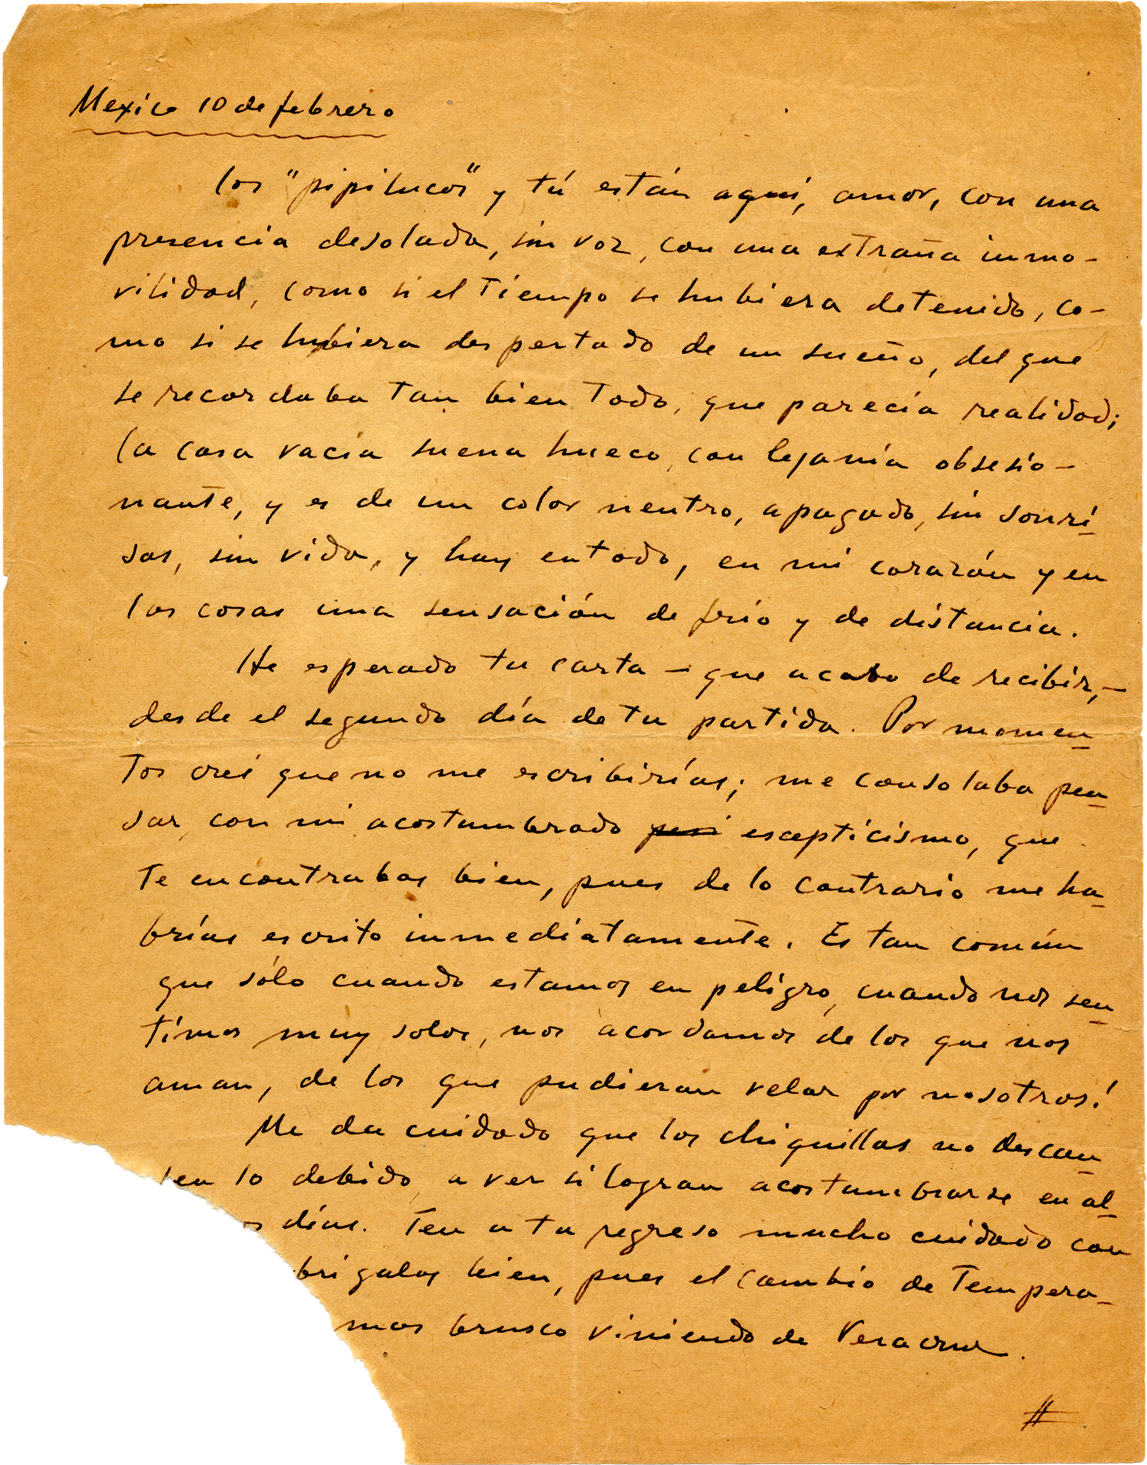 Mexico 10 de febrero
Los "pipilucos" y tú están aquí, amor, con una
presencia desolada, sin voz, con una extraña inmo-
vilidad, como si el tiempo se hubiera detenido, co-
mo si se hubiera despertado de un sueño, del que
se recordaba tan bien todo, que parecía realidad;
la casa vacía suena hueco, con lejanía obsesio-
nante, y es de un color neutro, apagado, sin sonri-
sas, sin vida, y hay en todo, en mi corazón y en
las cosas una sensación de frío y de distancia.
He esperado tu carta – que acabo de recibir, –
desde el segundo día de tu partida. Por momen-
tos creí que no me escribirías; me consolaba pen-
sar, con mi acostumbrado escepticismo, que
te encontrabas bien, pues de lo contrario me ha-
brías escrito inmediatamente. Es tan común
que sólo cuando estamos en peligro, cuando nos sen-
timos muy solos, nos acordamos de los que nos
aman, de los que pudieran velar por nosotros!
Me da cuidado que los chiquillos no descan-
sen lo debido, a ver si logran acostumbrarse en al-
os días. Ten a tu regreso mucho cuidado con
brígalos bien, pues el cambio de tempera-
mas brusco viniendo de Veracruz.
#